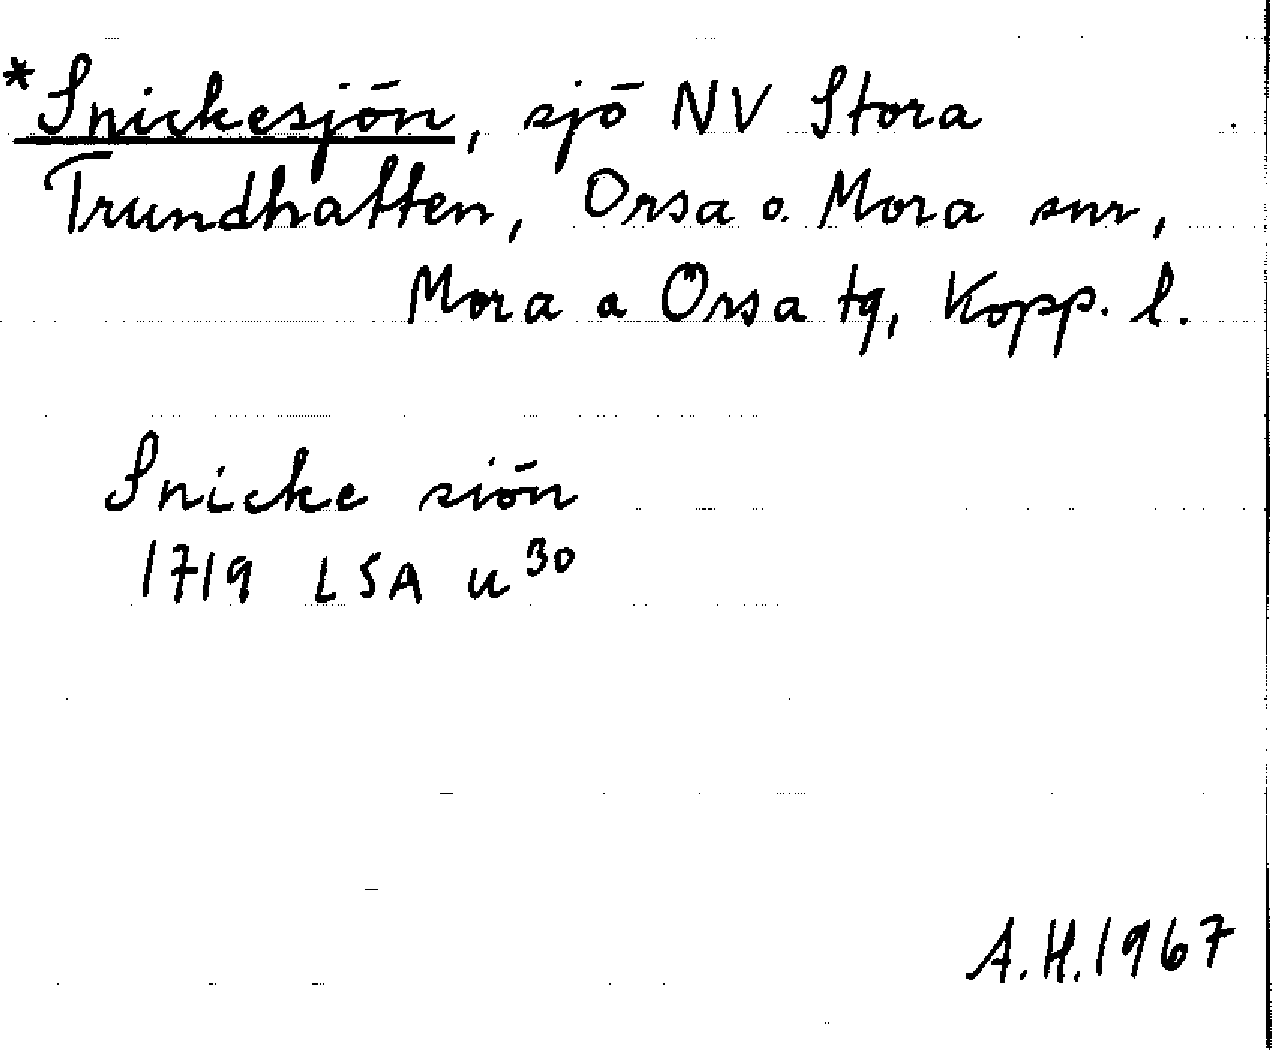 *Snickesjön, sjö NV Stora
Trundhatten, Orsa o. Mora snr,
Mora o Orsa tg, Kopp. l.
Snicke siön
1719 LSA u 30
A.H. 1967